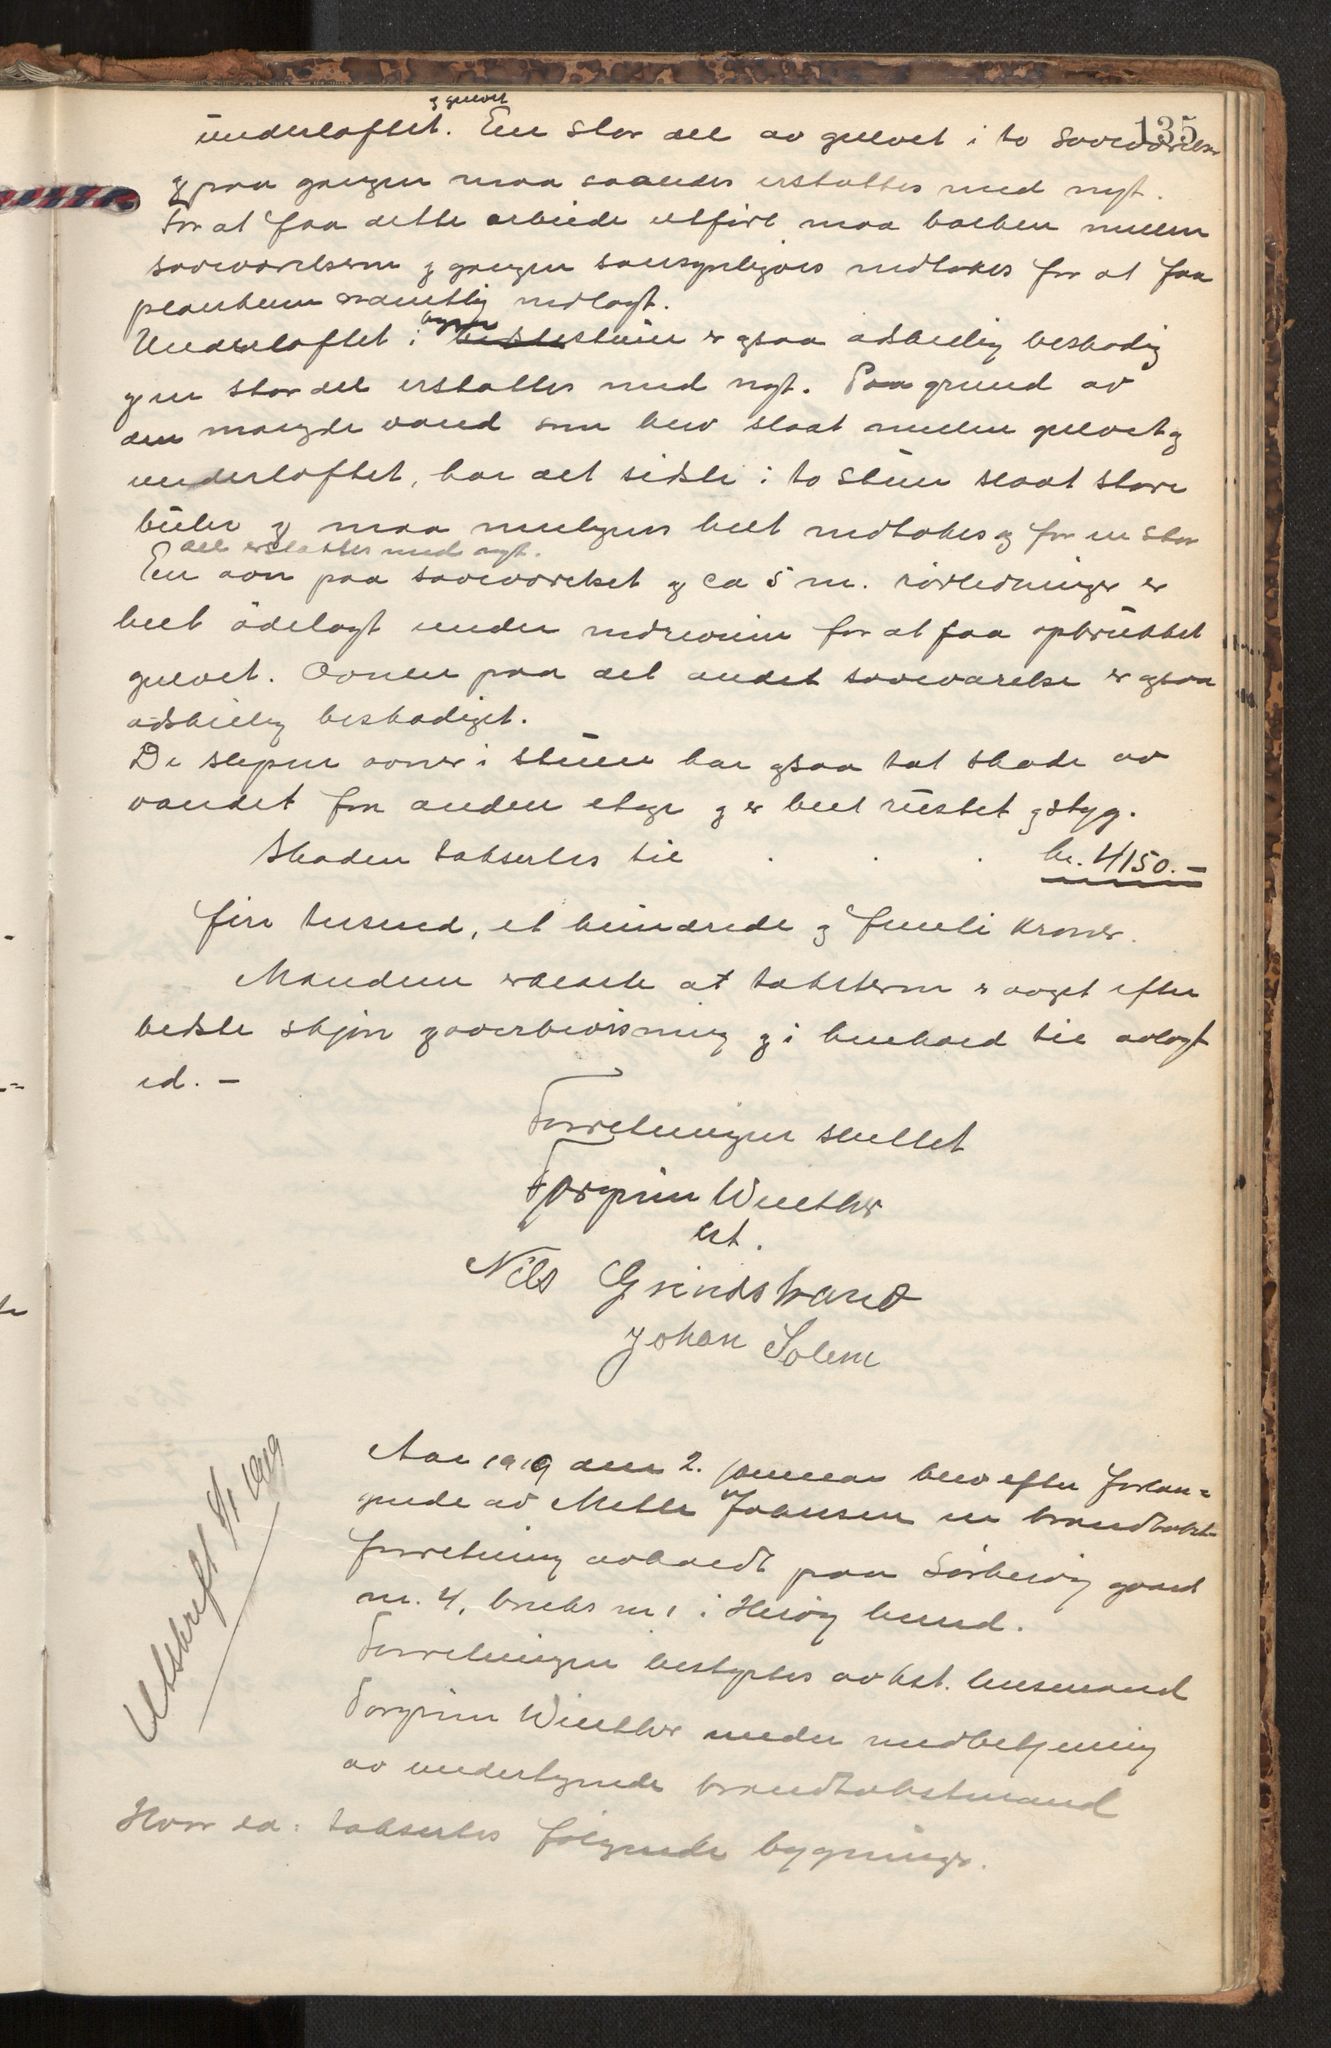 135
og gulvet
underloftet. En stor del av gulvet i to soveværelser
og paa gangen maa saaledes erstattes med nyt.
For at faa dette arbeide utført maa bælken mellem
soveværelserne og gangen sansynligvis nedtakes for at faa
plankerne ordentlig nedlagt.
Underloftet i stuen er ogsaa adskillig beskadig
og en stor del erstattes med nyt. Paa grund av
den mængde vand som blev slaat mellem gulvet og
underloftet, har det sidste i to stuer slaat store
buler og maa muligens helt nedtakes og for en stor
del erstattes med nyt.
En ovn paa soveværelset og ca 5 m. rørledninger er
helt ødelagt under nedrivning for at faa opbrukket
gulvet. Ovnen paa det andet soveværelse er ogsaa
adskillig beskadiget.
De slepne ovner i stuen har ogsaa tat skade av
vandet fra anden etage og er helt rustet og styg.
Skaden takseres til . . . kr. 4150.-
fire tusend, et hundrede og femti kroner.
Mændene erklærte at taksterne er avgit efter
bedste skjøn og overbevisning og i henhold til avlagt
ed. -
Forretningen sluttet
Torgrim Winther
cst.
Nils Grindstrand
Johan Solem
Utskrift 8/1 1919
Aar 1919 den 2. januar blev efter forlan=
gende av Mette Johansen en brandtakst-
forretning avholdt paa Sørherøy gaards
nr. 4, bruks nr 1 i Herøy herred.
Forretningen bestyrtes av kst. lensmand
Torgrim Winther under medbetjening
av undertegnede brandtakstmænd
Hvor da: taksertes følgende bygninger.